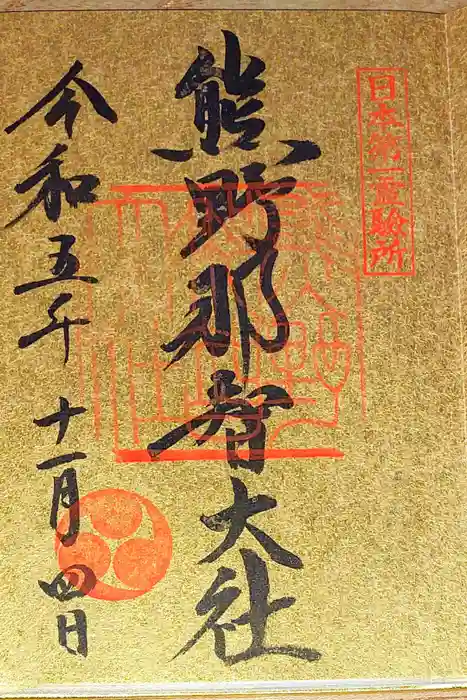 日本第一霊験所
熊野那智大社
令和五年
十一月四日